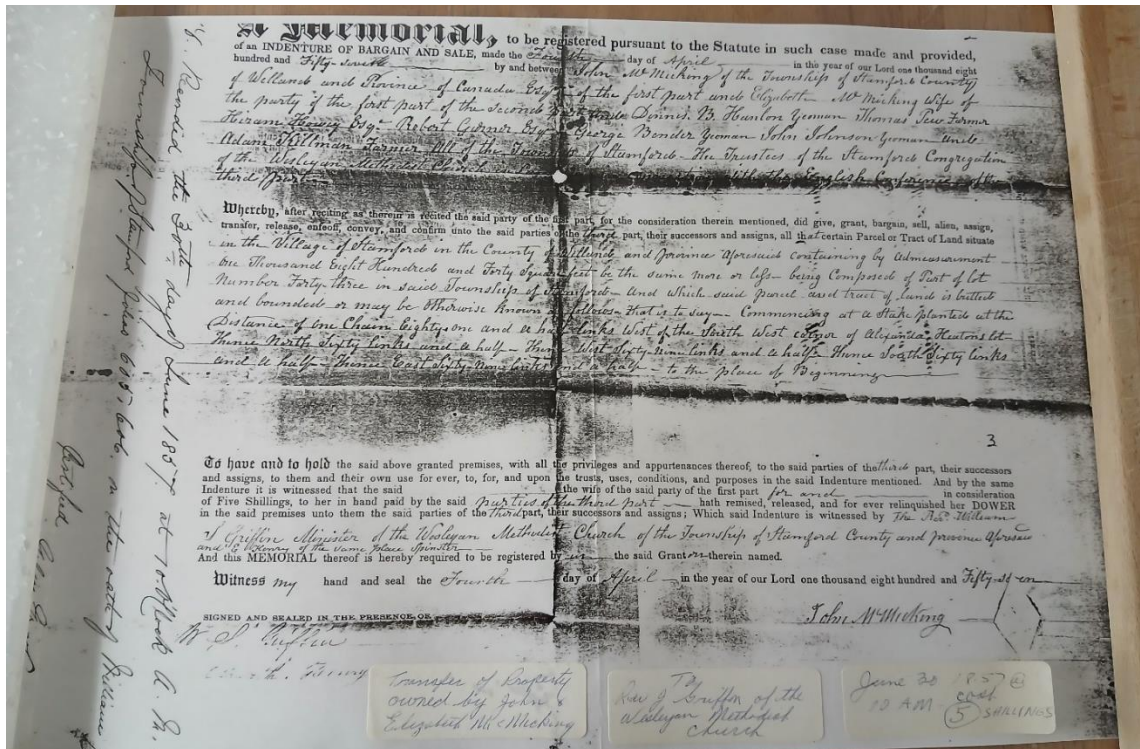 A Memorial, to be registered pursuant to the Statute in such case made and provided,
of an INDENTURE OF BARGAIN AND SALE, made the Fourth day of April in the year of our Lord one thousand eight
hundred and Fifty seven by and between John McMicking of the Township of Stamford County
of Welland and Province of Canada Esqr of the first part and Elizabeth McMicking Wife of
the party of the first part of the Second part and Dinnis. B. Hanlon Yeoman Thomas Pew Farmer
Hiram Esqr Robert Garner Esqr George Bender Yeoman John Johnson Yeoman and
Adam Killman Farmer All of the Township of Stamford - The Trustees of the Stamford Congregation
of the Wesleyan Methodist Church in connection with the English Conference of the
third part
Whereby, after reciting as therein is recited the said party of the first part, for the consideration therein mentioned, did give, grant, bargain, sell, alien, assign,
transfer, release, enfeoff, convey, and confirm unto the said parties of the third part, their successors and assigns, all that certain Parcel or Tract of Land situate
in the Village of Stamford in the County of Welland and province Aforesaid containing by Admeasurement
One Thousand Eight Hundred and Forty Square feet be the same more or less being Composed of Part of lot
Number Forty three in said Township of Stamford - And which said parcel and tract of land is butted
and bounded or may be otherwise Known as follows - that is to say - Commencing at a Stake planted at the
Distance of one Chain Eighty one and a half links West of the South West corner of Alixanda Heatons lot -
thence North Sixty links and a half - thence West Sixty nine links and a half - thence South Sixty links
and a half - thence East Sixty nine links and a half - to the place of Beginning
3
To have and to hold the said above granted premises, with all the privileges and appurtenances thereof, to the said parties of the third part, their successors
and assigns, to them and their own use for ever, to, for, and upon the trusts, uses, conditions, and purposes in the said Indenture mentioned. And by the same
Indenture it is witnessed that the said the wife of the said party of the first part for and in consideration
of Five Shillings, to her in hand paid by the said parties of the third part hath remised, released, and for ever relinquished her DOWER
in the said premises unto them the said parties of the third part, their successors and assigns; Which said Indenture is witnessed by The Revd. William
S Griffin Minister of the Wesleyan Methodist Church of the Township of Stamford County and province Aforesaid
and of the same place Spinster
And this MEMORIAL thereof is hereby required to be registered by me the said Grantor therein named.
Witness my hand and seal the Fourth day of April in the year of our Lord one thousand eight hundred and Fifty seven
SIGNED AND SEALED IN THE PRESENCE OF
John McMicking
W. S. Griffin
Transfer of Property
owned by John &
Elizabeth McMicking
To
Rev J Griffin of the
Wesleyan Methodist
Church
June 30 1857 @
10 AM cost
5 SHILLINGS
Recorded the 30th day of June 1857 at 10 oClock A. M.
Township of Stamford folios 605, 606. on the oath of William
Certified